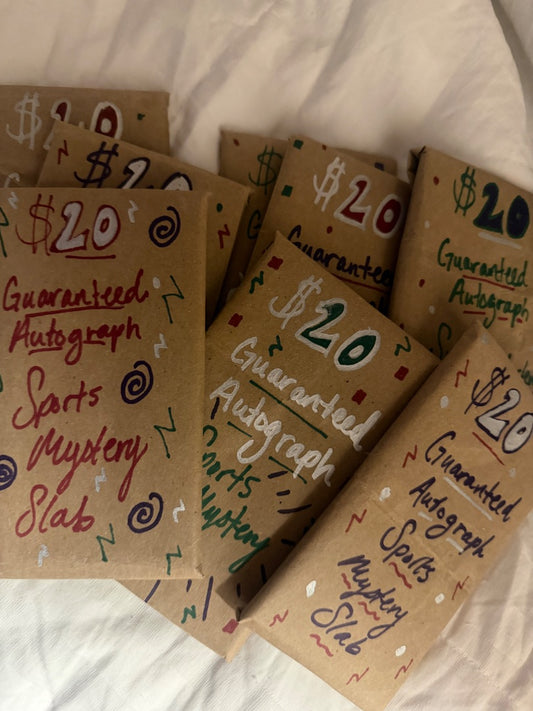 $20
$20
$20
Guaranteed
Autograph
Sports
Mystery
Slab
$
$20
Guaranteed
$20
Guaranteed
Autograph
Sports
Mystery
$20
Guaranteed
Autograph
$20
Guaranteed
Autograph
Sports
Mystery
Slab